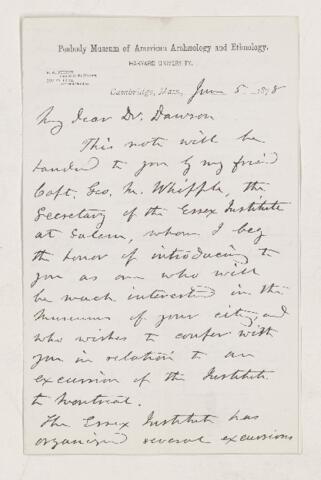 Peabody Museum of American Archæology and Ethnology.
HARVARD UNIVERSITY.
Cambridge, Mass., June 5 1878
My dear Dr. Dawson
This note will be
handed to you by my friend
Capt. Geo. M. Whipple, the
Secretary of the Essex Institute
at Salem, whom I beg
the honor of introducing to
you as one who will
be much interested in the
Museums of your city, and
who wishes to confer with
you in relation to an
excursion of the Institute
to Montreal.
The Essex Institute has
organized several excursions